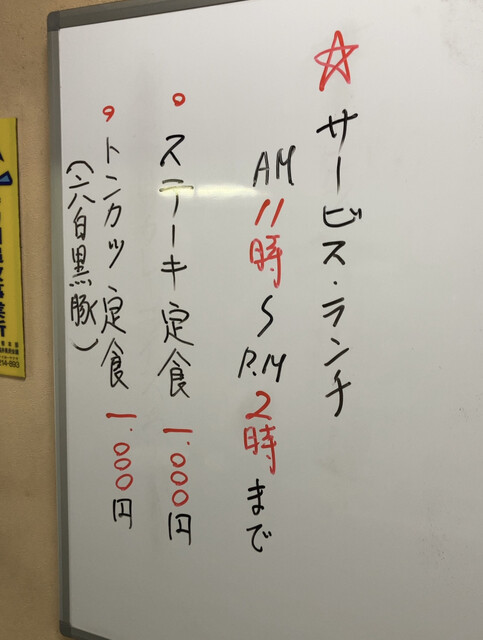 ☆サービス・ランチ
AM11時〜P.M2時まで
・ステーキ定食 一.000円
・トンカツ定食 一.000円
(六白黒豚)
214-893